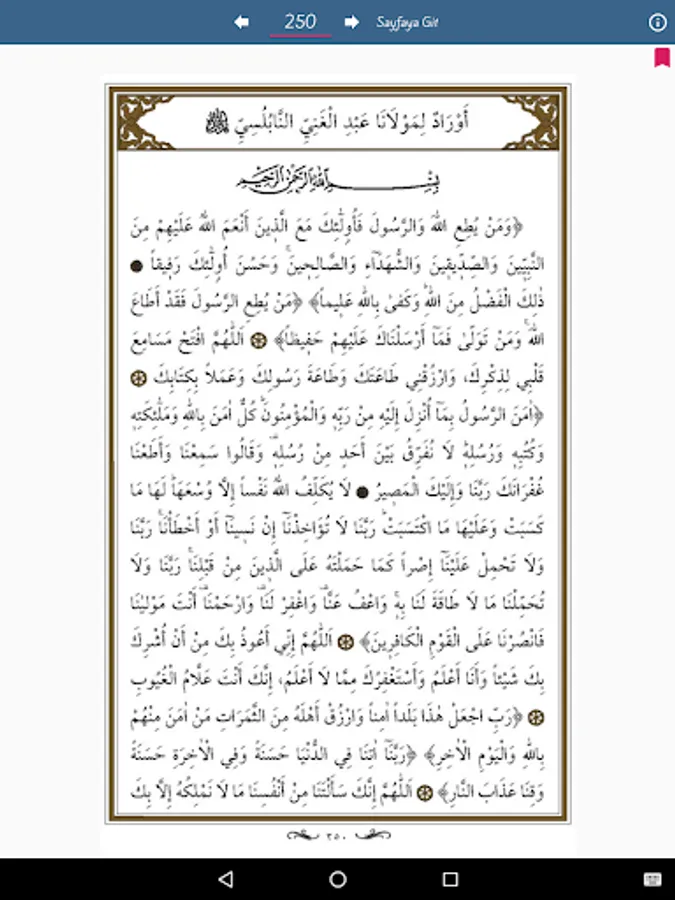 250 Sayfaya Git
أَوْرَادٌ لِمَوْلَانَا عَبْدِ الْغَنِيِّ النَّابُلُسِيِّ
بِسْمِ اللّٰهِ الرَّحْمٰنِ الرَّحِيمِ
﴿وَمَنْ يُطِعِ اللّٰهَ وَالرَّسُولَ فَأُولٰٓئِكَ مَعَ الَّذِينَ أَنْعَمَ اللّٰهُ عَلَيْهِمْ مِنَ
النَّبِيِّينَ وَالصِّدِّيقِينَ وَالشُّهَدَٓاءِ وَالصَّالِحِينَۚ وَحَسُنَ أُولٰٓئِكَ رَفِيقاً ●
ذٰلِكَ الْفَضْلُ مِنَ اللّٰهِۜ وَكَفٰى بِاللّٰهِ عَلِيماً﴾ ﴿مَنْ يُطِعِ الرَّسُولَ فَقَدْ أَطَاعَ
اللّٰهَۚ وَمَنْ تَوَلّٰى فَمَٓا أَرْسَلْنَاكَ عَلَيْهِمْ حَفِيظاً﴾ ۞ اَللّٰهُمَّ افْتَحْ مَسَامِعَ
قَلْبِي لِذِكْرِكَ، وَارْزُقْنِي طَاعَتَكَ وَطَاعَةَ رَسُولِكَ وَعَمَلاً بِكِتَابِكَ ۞
﴿اٰمَنَ الرَّسُولُ بِمَٓا أُنْزِلَ إِلَيْهِ مِنْ رَبِّهِ وَالْمُؤْمِنُونَۜ كُلٌّ اٰمَنَ بِاللّٰهِ وَمَلٰٓئِكَتِهِ
وَكُتُبِهِ وَرُسُلِهِۜ لَا نُفَرِّقُ بَيْنَ أَحَدٍ مِنْ رُسُلِهِ۠ وَقَالُوا سَمِعْنَا وَأَطَعْنَا
غُفْرَانَكَ رَبَّنَا وَإِلَيْكَ الْمَصِيرُ ● لَا يُكَلِّفُ اللّٰهُ نَفْساً إِلَّا وُسْعَهَاۜ لَهَا مَا
كَسَبَتْ وَعَلَيْهَا مَا اكْتَسَبَتْۜ رَبَّنَا لَا تُؤَاخِذْنَٓا إِنْ نَسِينَٓا أَوْ أَخْطَأْنَاۚ رَبَّنَا
وَلَا تَحْمِلْ عَلَيْنَٓا إِصْراً كَمَا حَمَلْتَهُ عَلَى الَّذِينَ مِنْ قَبْلِنَاۚ رَبَّنَا وَلَا
تُحَمِّلْنَا مَا لَا طَاقَةَ لَنَا بِهِۚ وَاعْفُ عَنَّا۠ وَاغْفِرْ لَنَا۠ وَارْحَمْنَا۠ أَنْتَ مَوْلٰينَا
فَانْصُرْنَا عَلَى الْقَوْمِ الْكَافِرِينَ﴾ ۞ اَللّٰهُمَّ إِنِّي أَعُوذُ بِكَ مِنْ أَنْ أُشْرِكَ
بِكَ شَيْئاً وَأَنَا أَعْلَمُ وَأَسْتَغْفِرُكَ مِمَّا لَا أَعْلَمُ، إِنَّكَ أَنْتَ عَلَّامُ الْغُيُوبِ
۞ ﴿رَبِّ اجْعَلْ هٰذَا بَلَداً اٰمِناً وَارْزُقْ أَهْلَهُ مِنَ الثَّمَرَاتِ مَنْ اٰمَنَ مِنْهُمْ
بِاللّٰهِ وَالْيَوْمِ الْاٰخِرِ﴾ ﴿رَبَّنَٓا اٰتِنَا فِي الدُّنْيَا حَسَنَةً وَفِي الْاٰخِرَةِ حَسَنَةً
وَقِنَا عَذَابَ النَّارِ﴾ ۞ اَللّٰهُمَّ إِنَّكَ سَأَلْتَنَا مِنْ أَنْفُسِنَا مَا لَا نَمْلِكُهُ إِلَّا بِكَ
٢٥٠